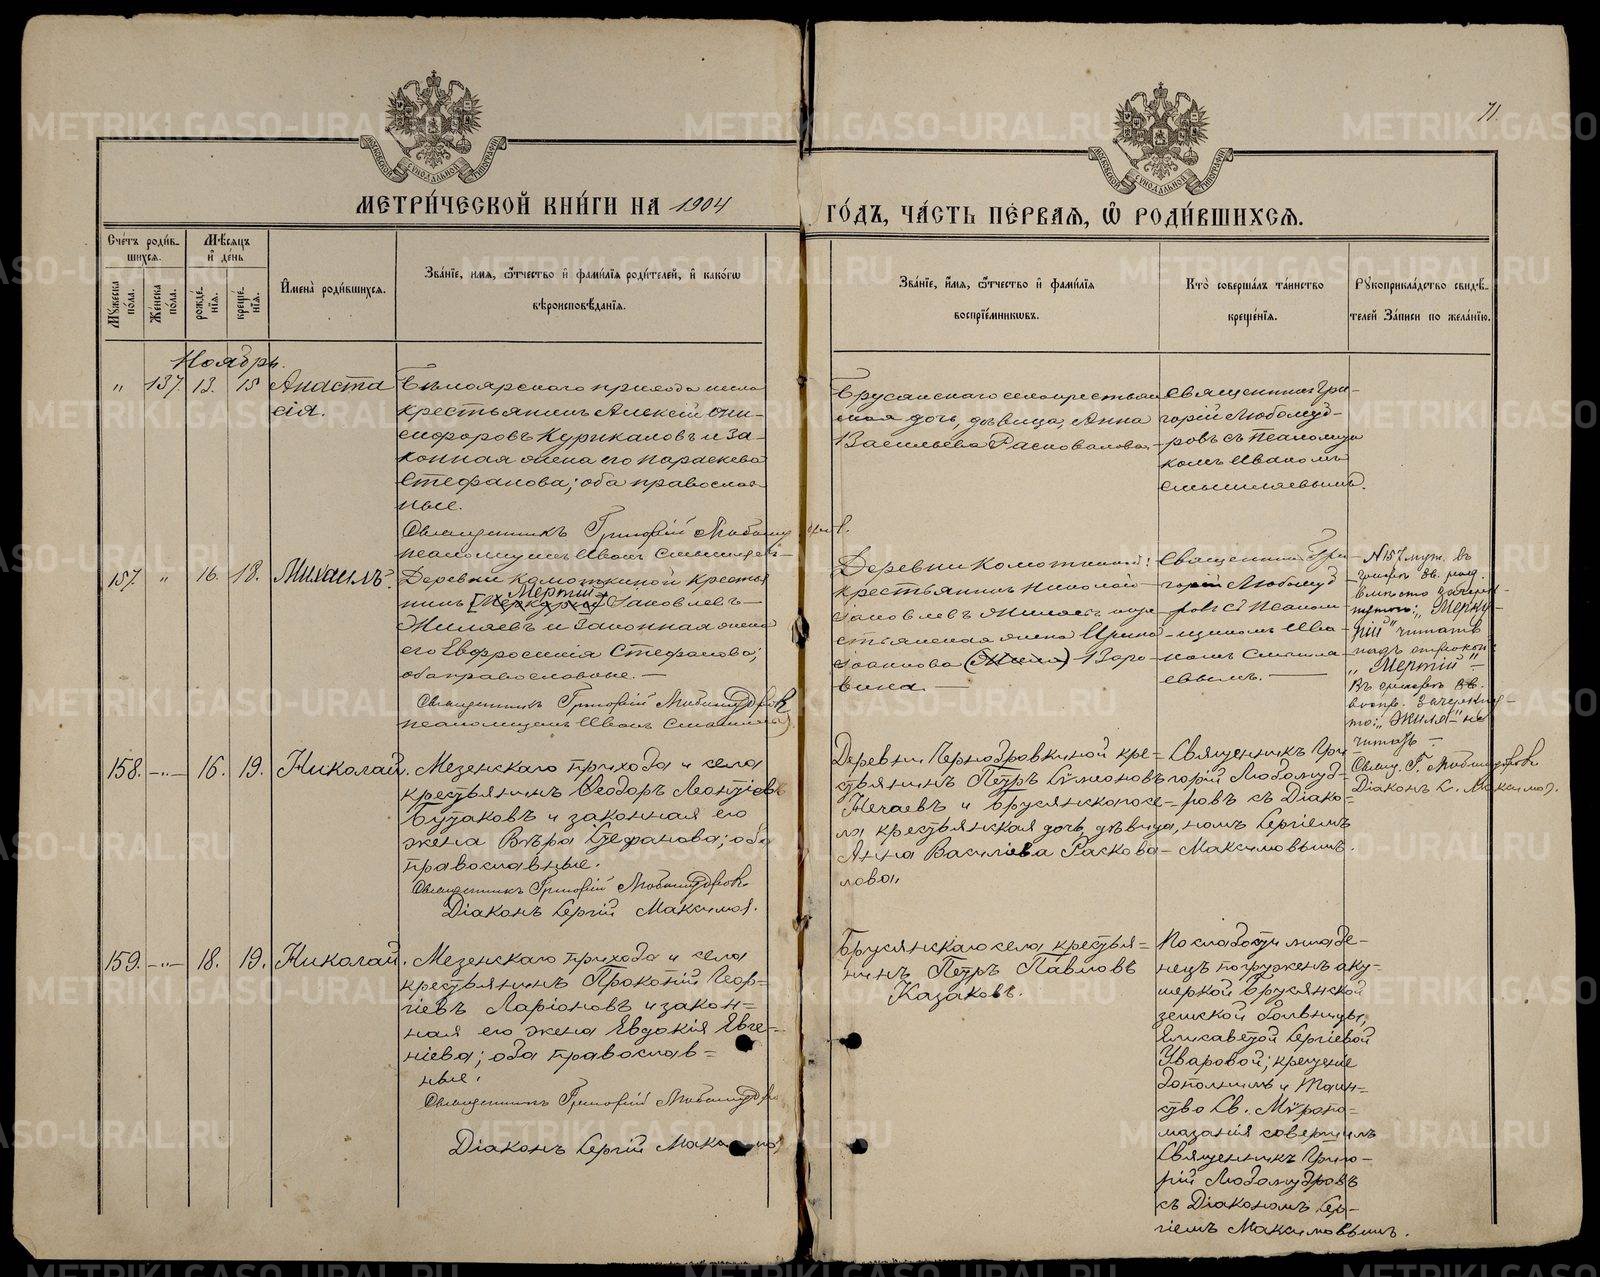 71.
МЕТРИ́ЧЕСКОЙ КНИ́ГИ НА 1904
ГО́ДЪ, ЧА́СТЬ ПЕ́РВАѦ, Ѿ РОДИ́ВШИХСѦ.
Счетъ роди́в-
шихся.
Мѣсяцъ
и҆ день
Мꙋжеска по́ла.
Же́нска по́ла.
рожде́нїѧ.
креще́нїѧ.
И҆мена̀ роди́вшихсѧ.
Зва́нїе, имѧ, ѻ҆́тчество и҆ фами́лїѧ роди́телей, и҆ како́гѡ
вѣроисповѣ́данїѧ.
Зва́нїе, и҆́мѧ, ѻ҆́тчество и҆ фами́лїѧ
воспрїе́мникѡвъ.
Кто̀ соверша́лъ та́инство
креще́нїѧ.
Рꙋкоприкла́дство свидѣ́-
телей За́писи по жела́нїю.
Ноябрь.
" 137. 13. 15 Анаста
сія.
Бѣлоярскаго прихода села
крестьянинъ Алексѣй Они-
сифоровъ Курикаловъ и за-
конная жена его Параскева
Стефанова; оба православ-
ные.
Священникъ Григорій Любомудровъ.
псаломщикъ Иванъ
Брусянскаго села крестьян
ская дочь, дѣвица, Анна
Васильева Расковалова
Священникъ Гри-
горій Любомуд-
ровъ съ псаломщи
комъ Иваномъ
Смышляевымъ.
157. " 16. 18. Михаилъ.
Деревни Комоткиной крестья
нинъ [Меркурій] Мертій Іаковлевъ
Жиляевъ и законная жена
его Евфросинія Стефанова;
оба православные.—
Священникъ Григорій Любомудровъ
псаломщикъ Иванъ
Деревни Комоткиной:
крестьянинъ Николай
Іаковлевъ Жиляевъ и кре
стьянская жена Ирина
Іоаннова (Жиля) Заро
вина —
Священникъ Гри
горій Любомуд
ровъ съ псалом
щикомъ Ива
номъ Смышля
евымъ. —
№ 157 муж. въ
графѣ зв. род.
вмѣсто зачерк-
нутого: "Мерку-
рій" читать
надъ строкой:
"Мертій" —
Въ графѣ зв.
воспр. зачеркну-
то: "Жиля" не
читать —
Свящ. Г. Любомудровъ
Діаконъ С. Максимов.
158. —"— 16. 19. Николай.
Мезенскаго прихода и села
крестьянинъ Ѳеодоръ Леонтіевъ
Бутаковъ и законная его
жена Вѣра Стефанова; оба
православные.
Священникъ Григорій Любомудровъ
Діаконъ Сергій Максимов.
Деревни Чернобровкиной кре-
стьянинъ Петръ Симеоновъ
Нечаевъ и Брусянскаго се-
ла крестьянская дочь дѣвица,
Анна Василіева Раскова-
лова.
Священникъ Гри
горій Любомуд-
ровъ съ Діако-
номъ Сергіемъ
Максимовымъ.
159. —"— 18. 19. Николай.
Мезенскаго прихода и села
крестьянинъ Прокопій Геор-
гіевъ Ларіоновъ и закон-
ная его жена Евдокія Евге-
ніева; оба православ-
ные.
Священникъ Григорій Любомудров
Діаконъ Сергій Мак
Брусянскаго села крестья-
нинъ Петръ Павловъ
Казаковъ.
По слабости младе-
нецъ погруженъ аку-
шеркой Брусянской
земской больницы
Елисаветой Сергіевой
Уваровой; крещеніе
дополнилъ и таин-
ство Св. Мѵропо-
мазанія совершилъ
Священникъ Григо-
рій Любомудровъ
съ Діакономъ Сер-
гіемъ Максимовымъ.
METRIKI.GASO-URAL.RU